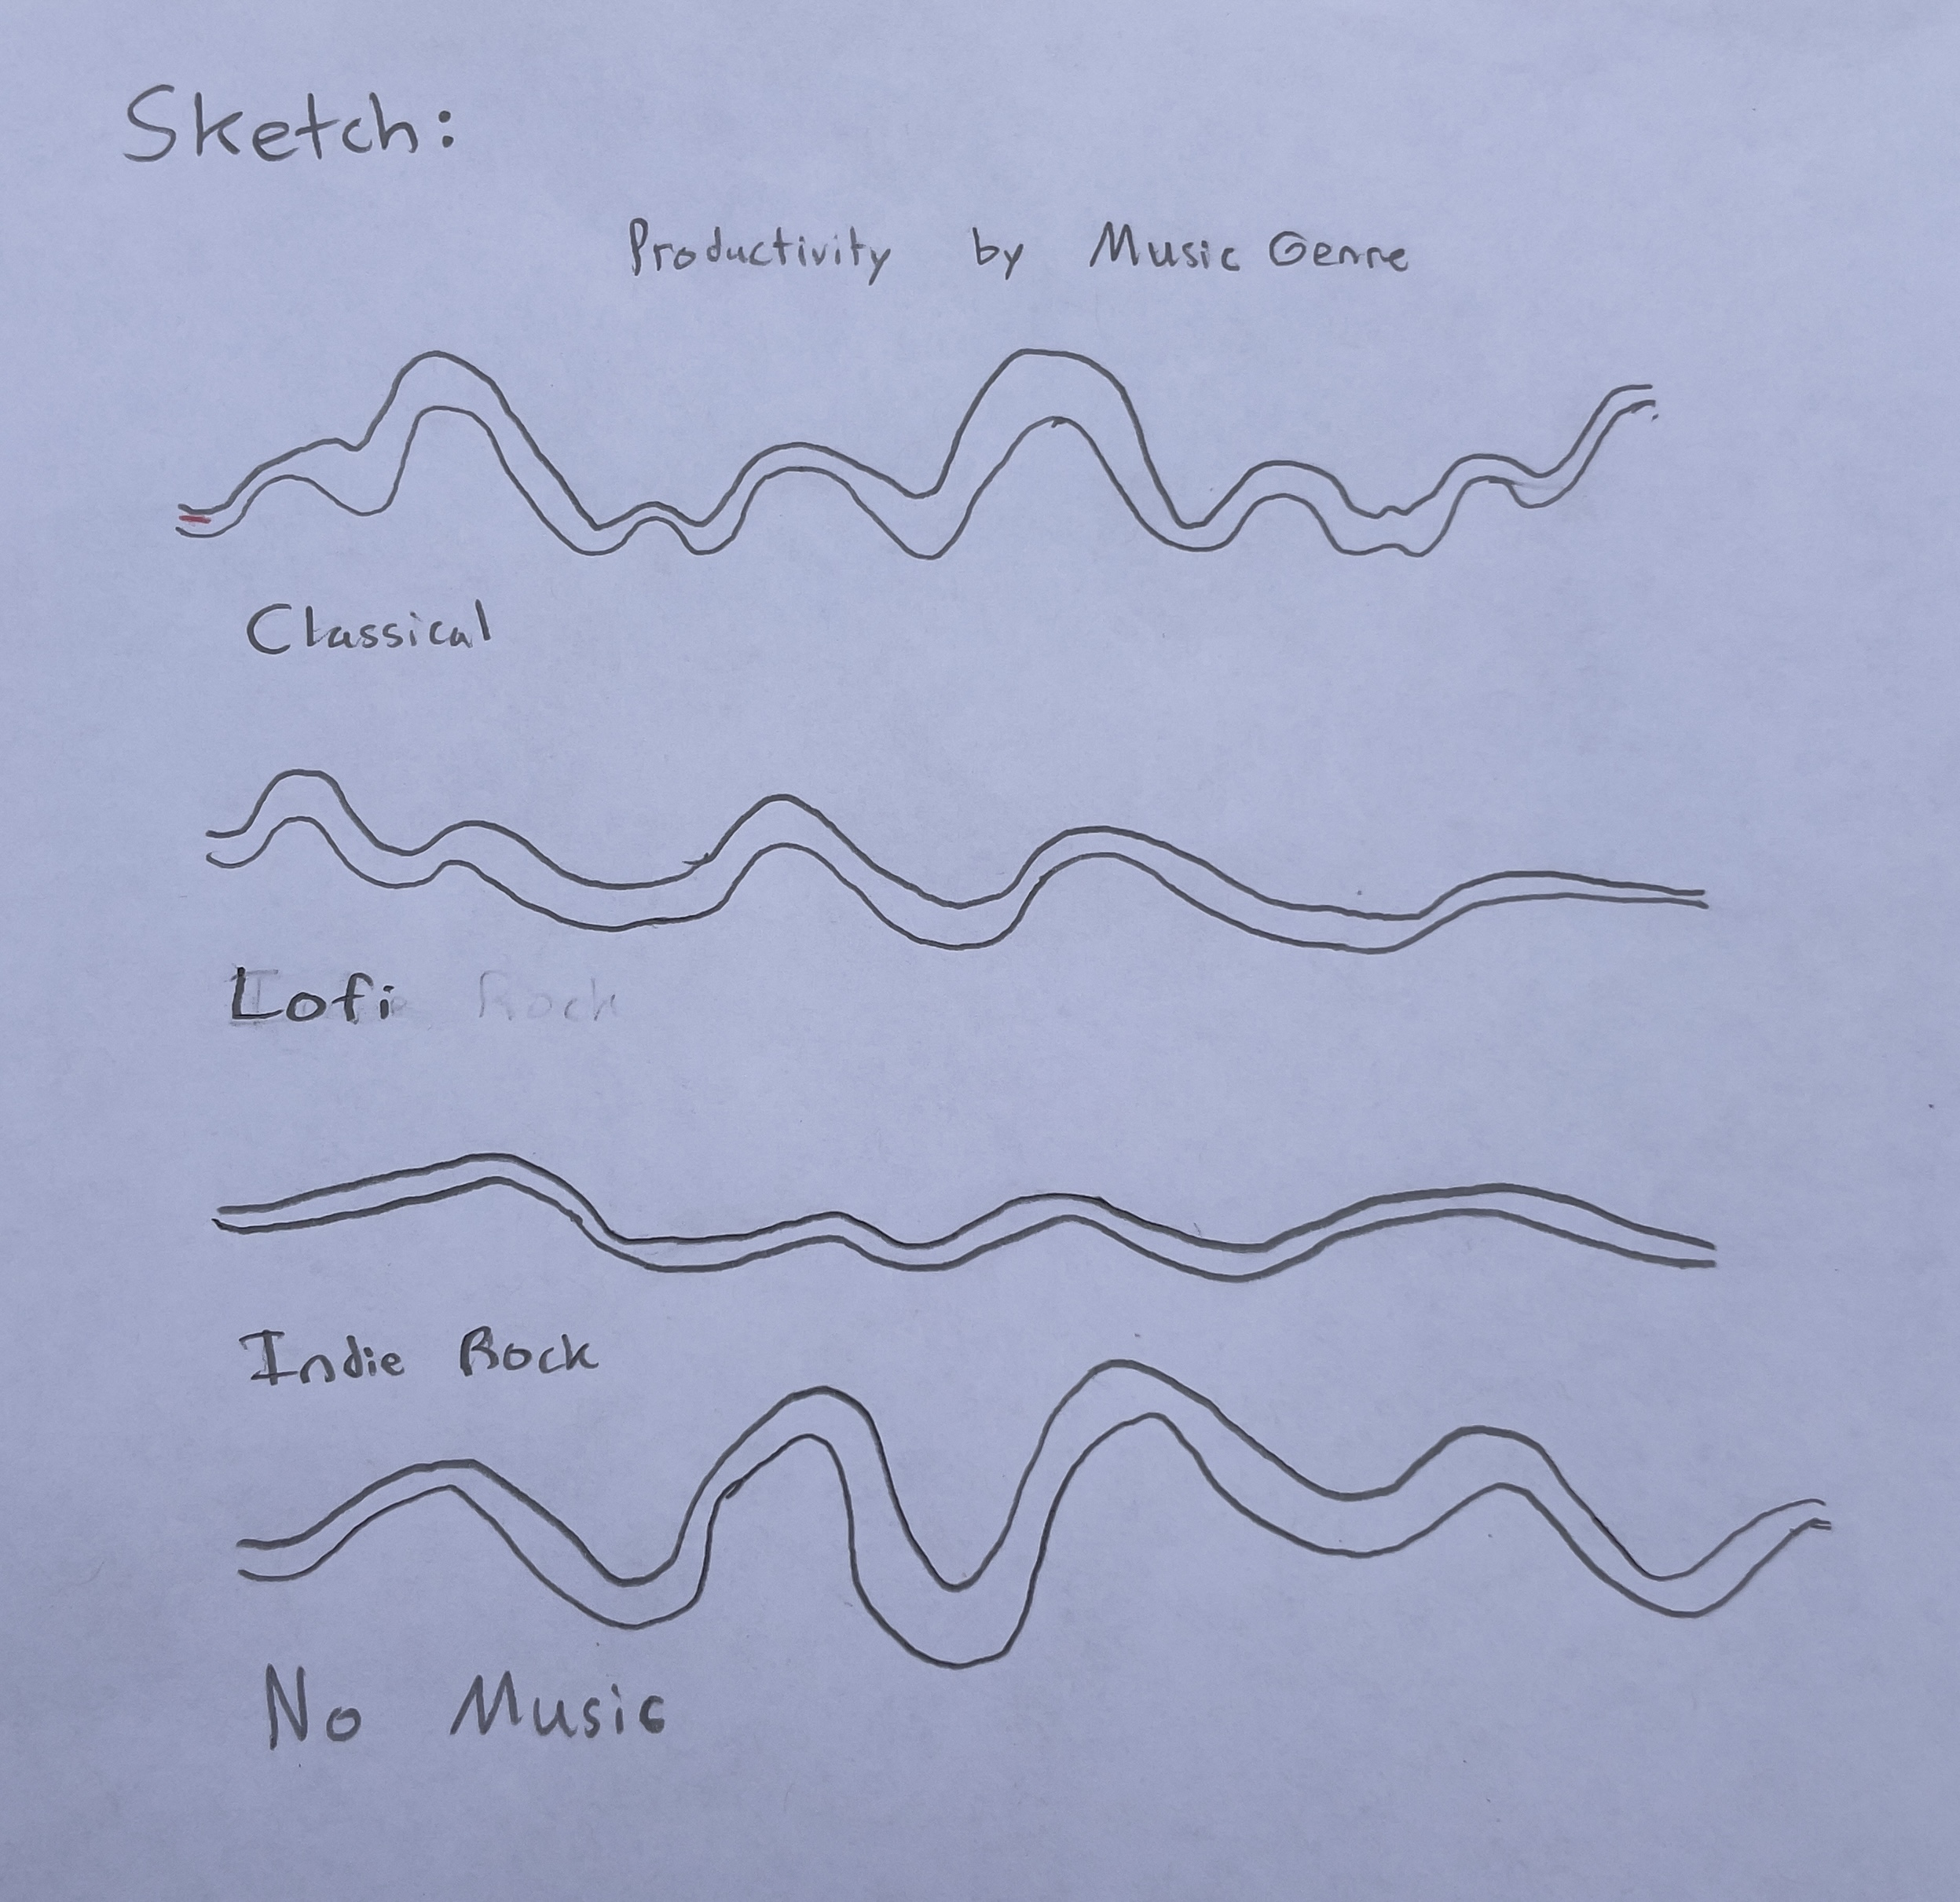 Sketch:
Productivity by Music Genre
Classical
Lofi Rock
Indie Rock
No Music